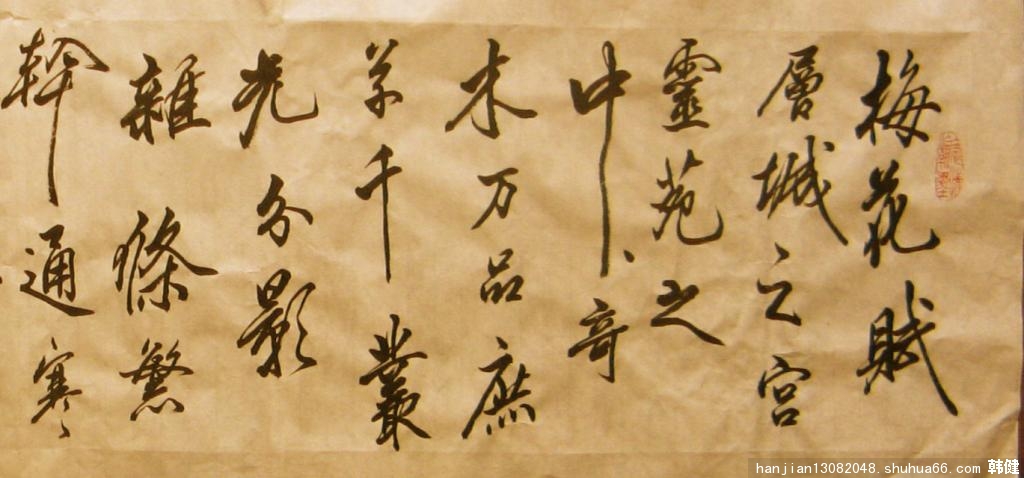 梅花賦
層城之宮
靈苑之
中、奇
木万品庶
草千叢
光分影
雜條繁
幹通寒
hanjian13082048.shuhua66.com 韩健